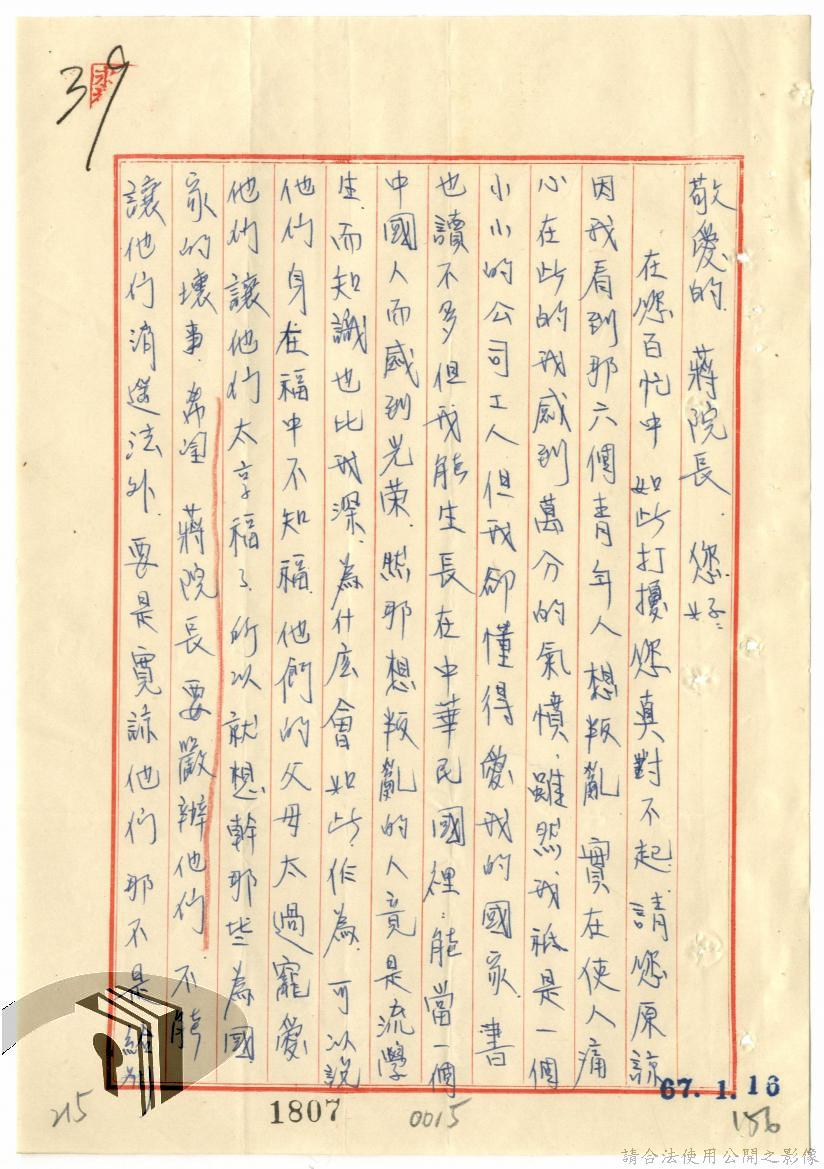 39
敬愛的 蔣院長.您好:
在您百忙中如此打擾您真對不起.請您原諒
因我看到那六個青年人想叛亂 實在使人痛
心在此的我感到萬分的氣憤.雖然我祇是一個
小小的公司工人.但我卻懂得愛我的國家.書
也讀不多但我能生長在中華民國裡.能當一個
中國人而感到光荣.然那想叛亂的人竟是流學
生.而知識也比我深.為什広會如此作為.可以說
他们身在福中不知福.他們的父母太過寵愛
他们讓他们太享福了.所以就想幹那些為國
家的壞事.希望 蔣院長要嚴辦他们.不能
讓他们消遙法外.要是寬諒他们那不是給
67. 1. 16
215
1807
0015
156
請合法使用公開之影像